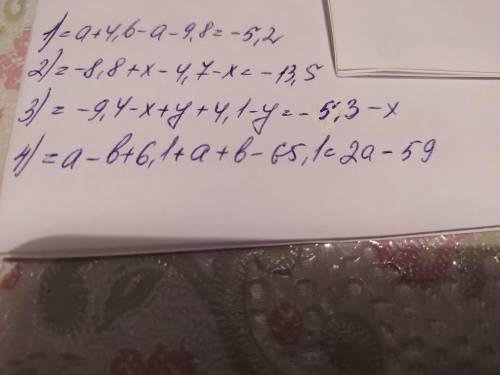 1) = a + 4,6 - a - 9,8 = - 5,2
2) = -8,8 + x - 4,7 - x = - 13,5
3) = -9,4 - x + y + 4,1 - y = - 5,3 - x
4) = a - b + 6,1 + a + b - 65,1 = 2a - 59